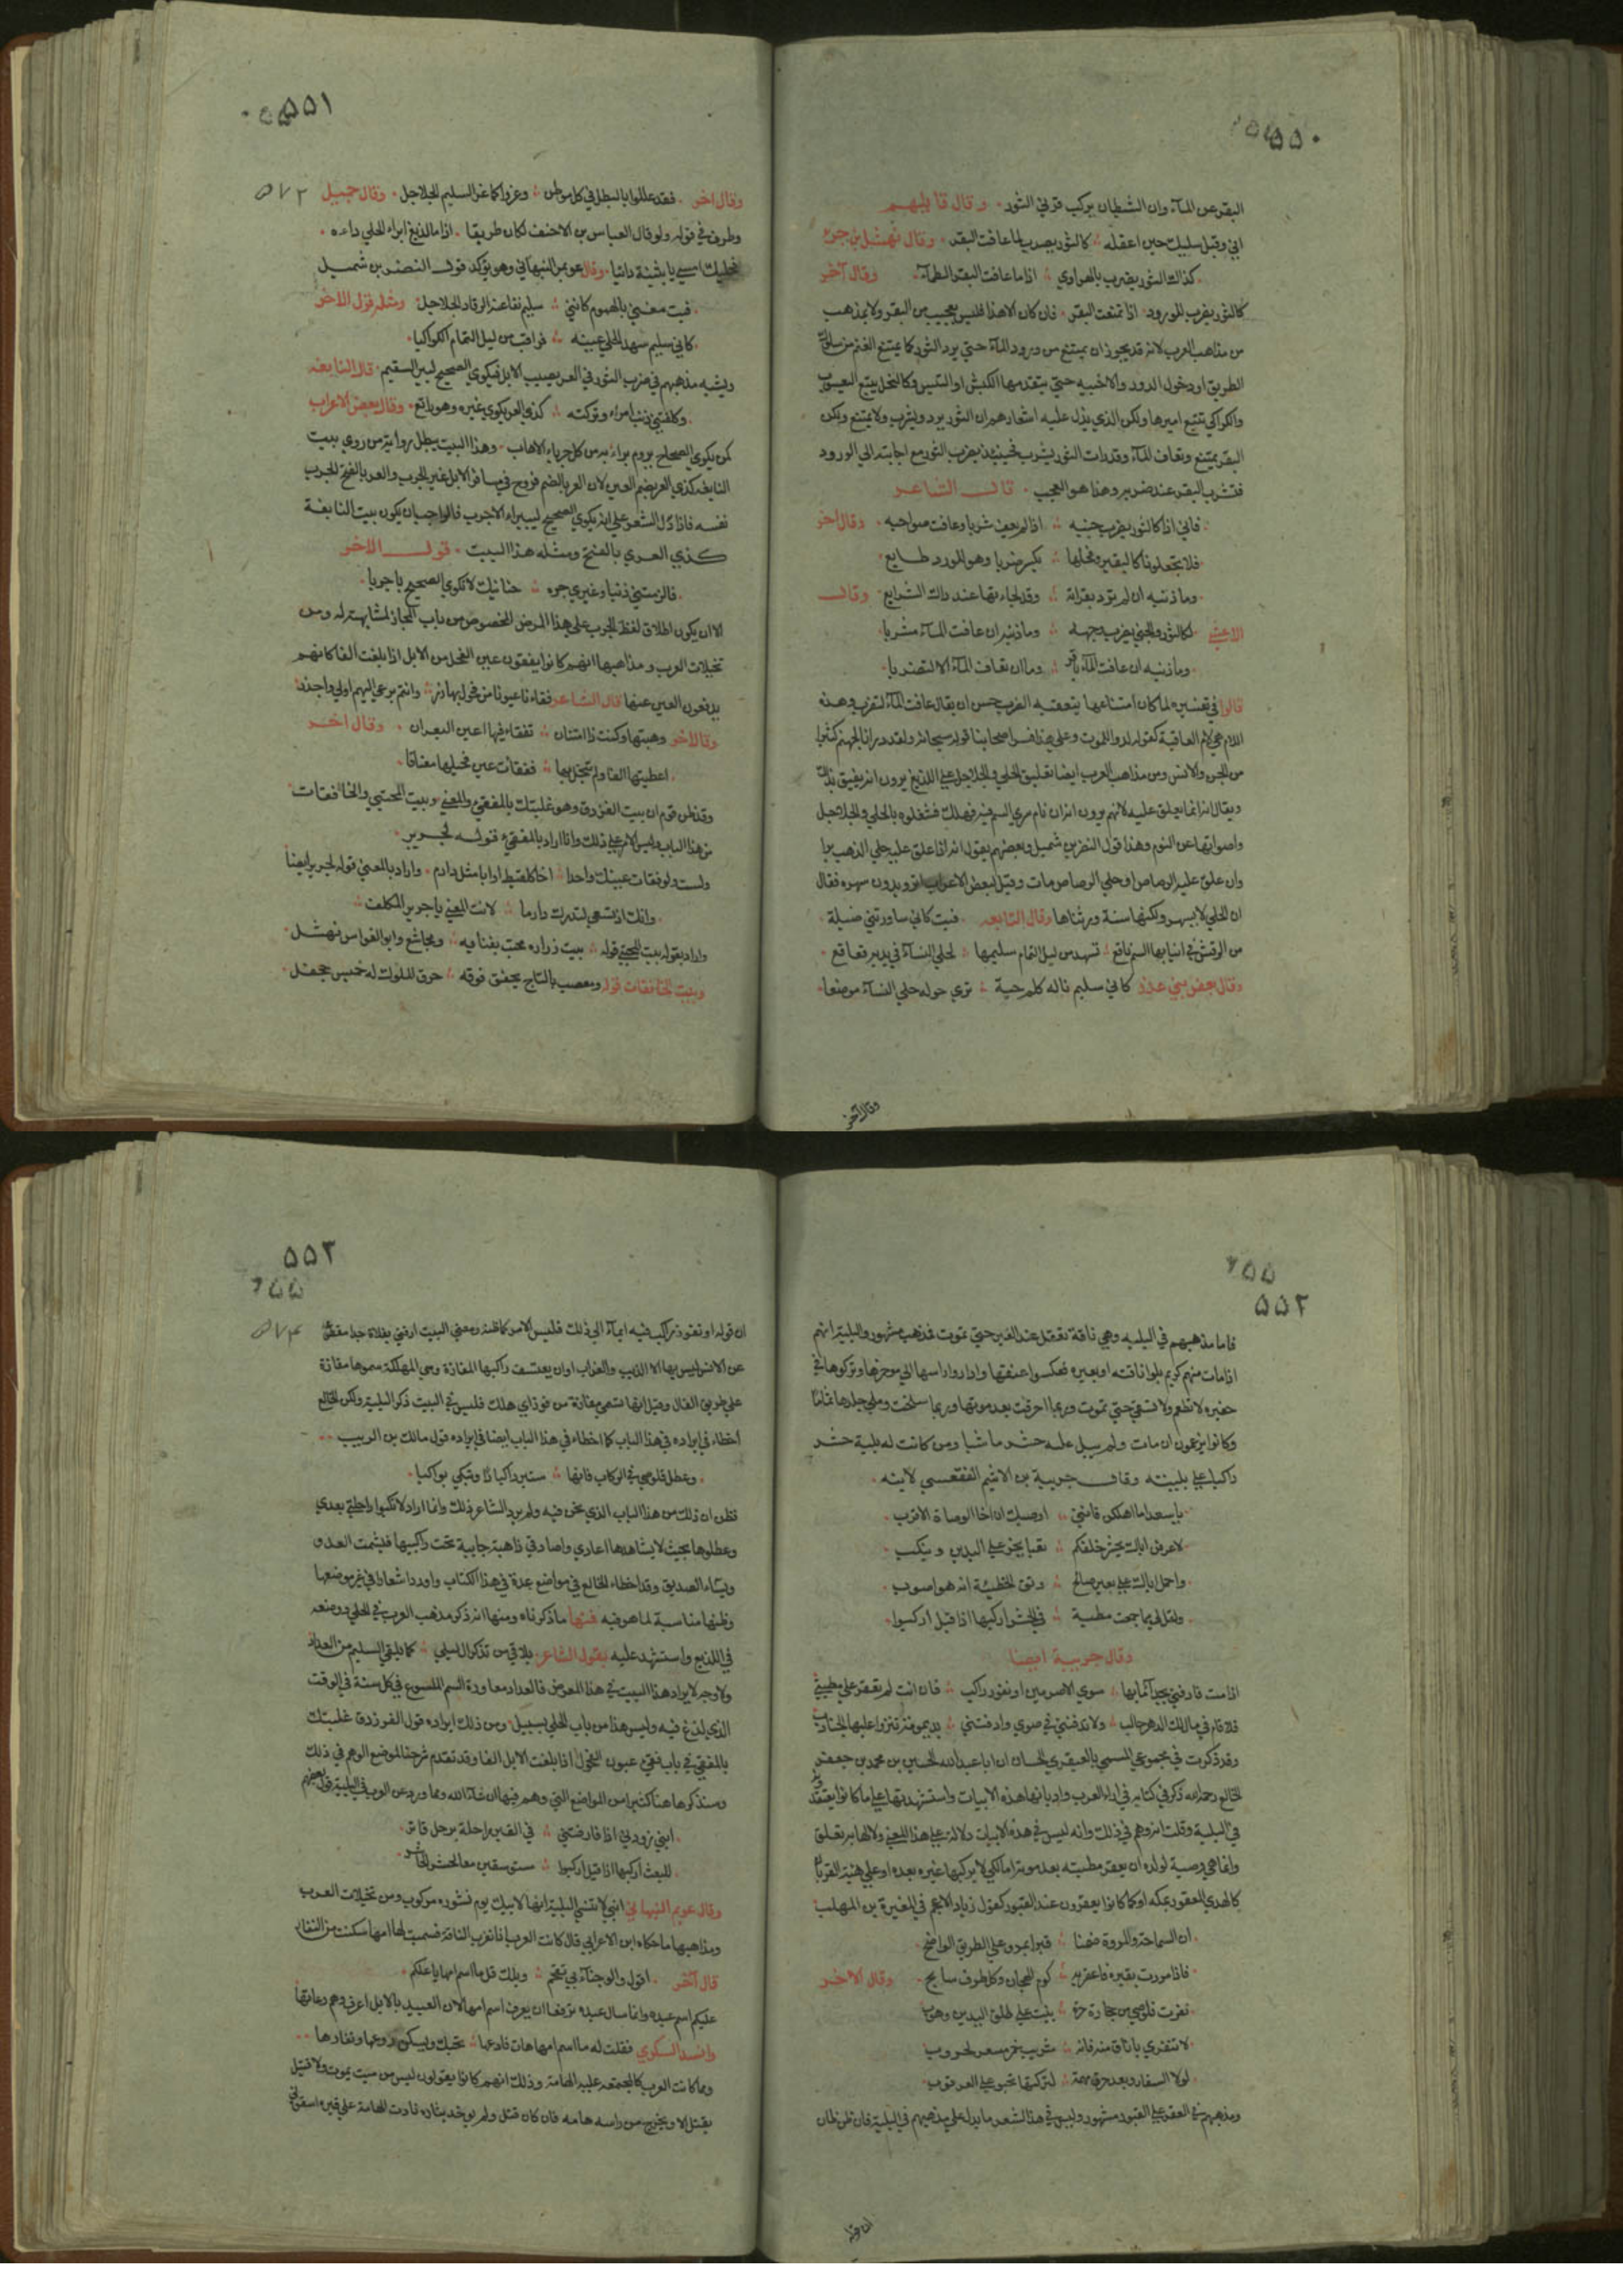 ٥٥٠
البقر عن المآء وان الشيطان يركب قرني الثور وقال قايلهم
اني وقتلي سليك حين اعقله كالثور يضرب لما عافت البقر وقال نهشل بن جرى
كذاك الثور يضرب بالهراوي اذا ما عافت البقر الظمآء وقال آخر
كالثور يضرب للورود اذا تمنعت البقر فان كان الا هذا فليس بعجيب من البقر ولا بمذهب
من مذاهب العرب لانه قد يجوز ان يمتنع من ورود المآء حتي يرد الثور كما يمتنع الغنم من سلوك
الطريق او دخول الدور والاخبيه حتي يتقدمها الكبش او التيس وكالنحل يتبع اليعسوب
والكراكي تتبع اميرها ولكن الذي يدل عليه اشعارهم ان الثور يرد ويشرب ولا يمتنع ولكن
البقر يمتنع وتعاف المآء وقد رات الثور يشرب فحينئذ يضرب الثور مع اجابته الي الورود
فتشرب البقر عند ضربه وهذا هو العجب قال الشاعر
فاني اذا كالثور يضرب جنبه اذا لم يعف شربا وعافت صواحبه وقال اخر
فلا تجعلونا كالبقير وفحلها يكسر ضربا وهو للورد طايع
وما ذنبه ان لم يرد بقراته وقد فاجاتها عند ذاك الشرايع وقال
الاعشي لكالثور والجني يضرب وجهه وما ذنبه ان عافت المآء مشربا
وما ذنبه ان عافت المآء باقر وما ان تعاف المآء الا لتضربا
قالوا في تفسيره لما كان امتناعها يتعقبه الضرب حسن ان يقال عافت المآء لتضرب وهذه
اللام هي لام العاقبة كقوله لدوا للموت وعلي هذا فسر اصحابنا قوله سبحانه ولقد ذرانا لجهنم كثيرا
من الجن والانس ومن مذاهب العرب ايضا تعليق الحلي والجلاجل علي اللديغ يرون انه يفيق بذلك
ويقال انه انما يعلق عليه لانهم يرون انه ان نام سري السم فيه فهلك فشغلوه بالحلي والجلاجل
واصواتها عن النوم وهذا قول النضر بن شميل وبعضهم يقول انه اذا علق عليه حلي الذهب برا
وان علق عليه الرصاص او حلي الرصاص مات وقيل لبعض الاعراب اتريدون سهره فقال
ان الحلي لا يسهر ولكنها سنة ورثناها وقال النابغه فبت كاني ساورتني ضئيلة
من الرقش في انيابها السم ناقع تسهد من ليل التمام سليمها لحلي النسآء في يديه قعاقع
وقال بعض بني عذره كاني سليم ناله كلم حية تري حوله حلي النسآء موضعا
وقال آخر
٥٥١
٥٧٢
وقال اخر فقد عللوا بالبطل في كل موطن وغروا كما غر السليم الجلاجل وقال جميل
وظرف في قوله ولو قال العباس بن الاحنف لكان ظريفا اذا ما لديغ ابراء الحلي داءه
فحليك امسي يا بثينة دائيا وقال عويمر النبهاني وهو يؤكد قول النضر بن شميل
فبت معني بالهموم كانني سليم نفا عنه الرقاد الجلاجل ومثله قول الاخر
كاني سليم سهد الحلي عينه فراقب من ليل التمام الكواكبا
ويشبه مذهبهم في ضرب الثور في العر يصيب الابل فيكوي الصحيح ليبر السقيم قال النابغه
وكلفتني ذنب امراء وتركته كذي العر يكوي غيره وهو راتع وقال بعض الاعراب
كمن يكوي الصحاح يروم براء به من كل جرباء الاهاب وهذا البيت يبطل رواية من روي بيت
النابغه كذي العر بضم العين لان العر بالضم قروح في مشافر الابل غير الجرب والعر بالفتح الجرب
نفسه فاذا دل الشعر علي انه يكوي الصحيح ليبراء الاجرب فالواجب ان يكون بيت النابغة
كذي العر بالفتح ومثله هذا البيت قول الاخر
فالزمتني ذنبا وغيري جره حنانيك لا تكوي الصحيح باجربا
الا ان يكون اطلاق لفظ الجرب علي هذا المرض المخصوص من باب المجاز لمشابهته له ومن
تخيلات العرب ومذاهبها انهم كانوا يفقؤن عين الفحل من الابل اذا بلغت الفا كانهم
يدفعون العين عنها قال الشاعر فقاءنا عيونا من فحول بهازر وانتم برعي البهم اولي واجدر
وقال اخر وهبتها وكنت ذا امتنان تفقاء فيها اعين البعران وقال اخر
اعطيتها الفا ولم تبخل بها ففقات عين فحيلها معتافا
وقد ظن قوم ان بيت الفرزدق وهو غلبتك بالمفقئ والمعني وبيت المحتبي والخافقات
من هذا الباب وليس الامر علي ذلك وانما اراد بالمفقئ قوله لجرير
ولست ولو فقات عينك واجدا اخا كلقيط او ابا مثل دارم واراد بالمعني قوله لجرير ايضا
وانك اذ تسعي لتدرك دارما لانت المعني يا جرير المكلف
واراد بقوله بيت المحتبي قوله بيت زراره محتب بفنايه ومجاشع وابو الفوارس نهشل
وبيت الخافقات قوله ومعصب بالتاج يخفق فوقه خرق الملوك له خميس جحفل
٥٥٢
فاما مذهبهم في البليه وهي ناقة تعقل عند القبر حتي تموت فمذهب مشهور والبلية انهم
اذا مات منهم كريم بلوا ناقته او بعيره فعكسوا عنقها وادا روا راسها الي موخرها وتركوها في
حفيره لا تطعم ولا تسقي حتي تموت وربما احرقت بعد موتها وربما سلخت وملي جلدها ثماما
وكانوا يزعمون ان مات ولم يبل عليه حشر ماشيا ومن كانت له بلية حشر
راكبا علي بليته وقال جريبة بن الاشيم الفقعسي لابنه
يا سعد اما اهلكن فانني اوصيك ان اخا الوصاة الاقرب
لا اعرفن اباك يحشر خلفكم تعبا يخر علي اليدين وينكب
واحمل اباك علي بعير صالح وتق الخطيئة انه هو اصوب
ولعل لي مما جمعت مطية في الحشر اركبها اذا قيل اركبوا
وقال جريبة ايضا
اذا مت فادفني بجداء ما بها سوي الاصرمين او يفوز راكب فان انت لم تعقر علي مطيتي
فلا قام في مال لك الدهر حالب ولا تدفنني في صوي وادفنني بديمومة تنزوا عليها الجنادب
وقد ذكرت في مجموعي المسمي بالعبقري الحسان ان ابا عبد الله الحسين بن محمد بن جعفر
الخالع رحمه الله ذكر في كتابه في اراء العرب وادبانها هذه الابيات واستشهد بها علي ما كانوا يعتقدون
في البلية وقلت انه وهم في ذلك وانه ليس في هذه الابيات دلالة علي هذا المعني ولا لها به تعلق
وانما هي وصية لولده ان يعقر مطيته بعد موته اما لكي لا يركبها غيره بعده او علي هيئة القربان
كالهدي المعقور بمكه او كما كانوا يعقرون عند القبور كقول زياد الاعجم في المغيرة بن المهلب
ان السماحة والمروة ضمنا قبرا بمرو علي الطريق الواضح
فاذا مررت بقبره فاعقر به كوم الهجان وكل طرف سابح وقال الاخر
نفرت قلوصي من حجارة حرة بنيت علي طلق اليدين وهوب
لا تنفري يا ناق منه فانه شريب خمر مسعر لحروب
لولا السفار وبعد خرق مهمة لتركتها تحبو علي العرقوب
ومذهبهم في العقر علي القبور مشهور وليس في هذا الشعر ما يدل علي مذهبهم في البلية فان ظن ظان
ان قوله
٥٥٣
٥٧٣
ان قوله او يفوز راكب فيه ايمآء الي ذلك فليس الامر كما ظنه ومعني البيت ادفني بفلاة جداء مقطوعة
عن الانس ليس بها الا الذيب والغراب او ان يعتسف راكبها المفازة وهي المهلكة سموها مفازة
علي طريق الفال وقيل انها تسمي مفازة من فوز اي هلك فليس في البيت ذكر البلية ولكن الخالع
اخطاء في ايراده في هذا الباب كما اخطاء في هذا الباب ايضا في ايراده قول مالك بن الريب
وعطل قلوصي في الركاب فانها ستبرد اكبادا وتبكي بواكيا
فظن ان ذلك من هذا الباب الذي نحن فيه ولم يرد الشاعر ذلك وانما اراد لا تركبوا راحلتي بعدي
وعطلوها بحيث لا يشاهدها اعادي واصادقي ذاهبة جايية تحت راكبها فيشمت العدو
ويساء الصديق وقد اخطاء الخالع في مواضع عدة في هذا الكتاب واورد اشعارا في غير موضعها
وظنها مناسبة لما هو فيه فمنها ما ذكرناه ومنها انه ذكر مذهب العرب في الحلي ووضعه
في اللديغ واستشهد عليه بقول الشاعر يلاقي من تذكر ال ليلي كما يلقي السليم من العداد
ولا وجه لايراد هذا البيت في هذا الموضع فالعداد معاودة السم الملسوع في كل سنة في الوقت
الذي لدغ فيه وليس هذا من باب الحلي بسبيل ومن ذلك ايراده قول الفرزدق غلبتك
بالمفقئ في باب فقئ عيون الفحول اذا بلغت الابل الفا وقد تقدم شرحنا لموضع الوهم في ذلك
وسنذكر ها هنا كثيرا من المواضع التي وهم فيها ان شآء الله ومما ورد عن العرب في البلية قول بعضهم
ابني زودني اذا فارقتني في القبر راحلة برحل قاتر
للبعث اركبها اذا قيل اركبوا مستوسقين معا لحشر الحاشر
وقال عويم النبهاني ابني لا تنسي البلية انها لابيك يوم نشوره مركوب ومن تخيلات العرب
ومذاهبها ما حكاه ابن الاعرابي قال كانت العرب اذا نفرت الناقة فسميت لها امها سكنت من النفار
قال آخر اقول والوجنآء بي تقحم ويلك قل ما اسم امها يا علكم
علكم اسم عبده وانما سال عبده ترفعا ان يعرف اسم امها لان العبيد بالابل اعرف وهم رعاتها
وانشد السكري فقلت له ما اسم امها هات فادعها تجبك ويسكن روعها ونفارها
ومما كانت العرب كالمجتمعه عليه الهامة وذلك انهم كانوا يقولون ليس من ميت يموت ولا قتيل
يقتل الا ويخرج من راسه هامه فان كان قتل ولم يوخذ بثاره نادت الهامة علي قبره اسقوني